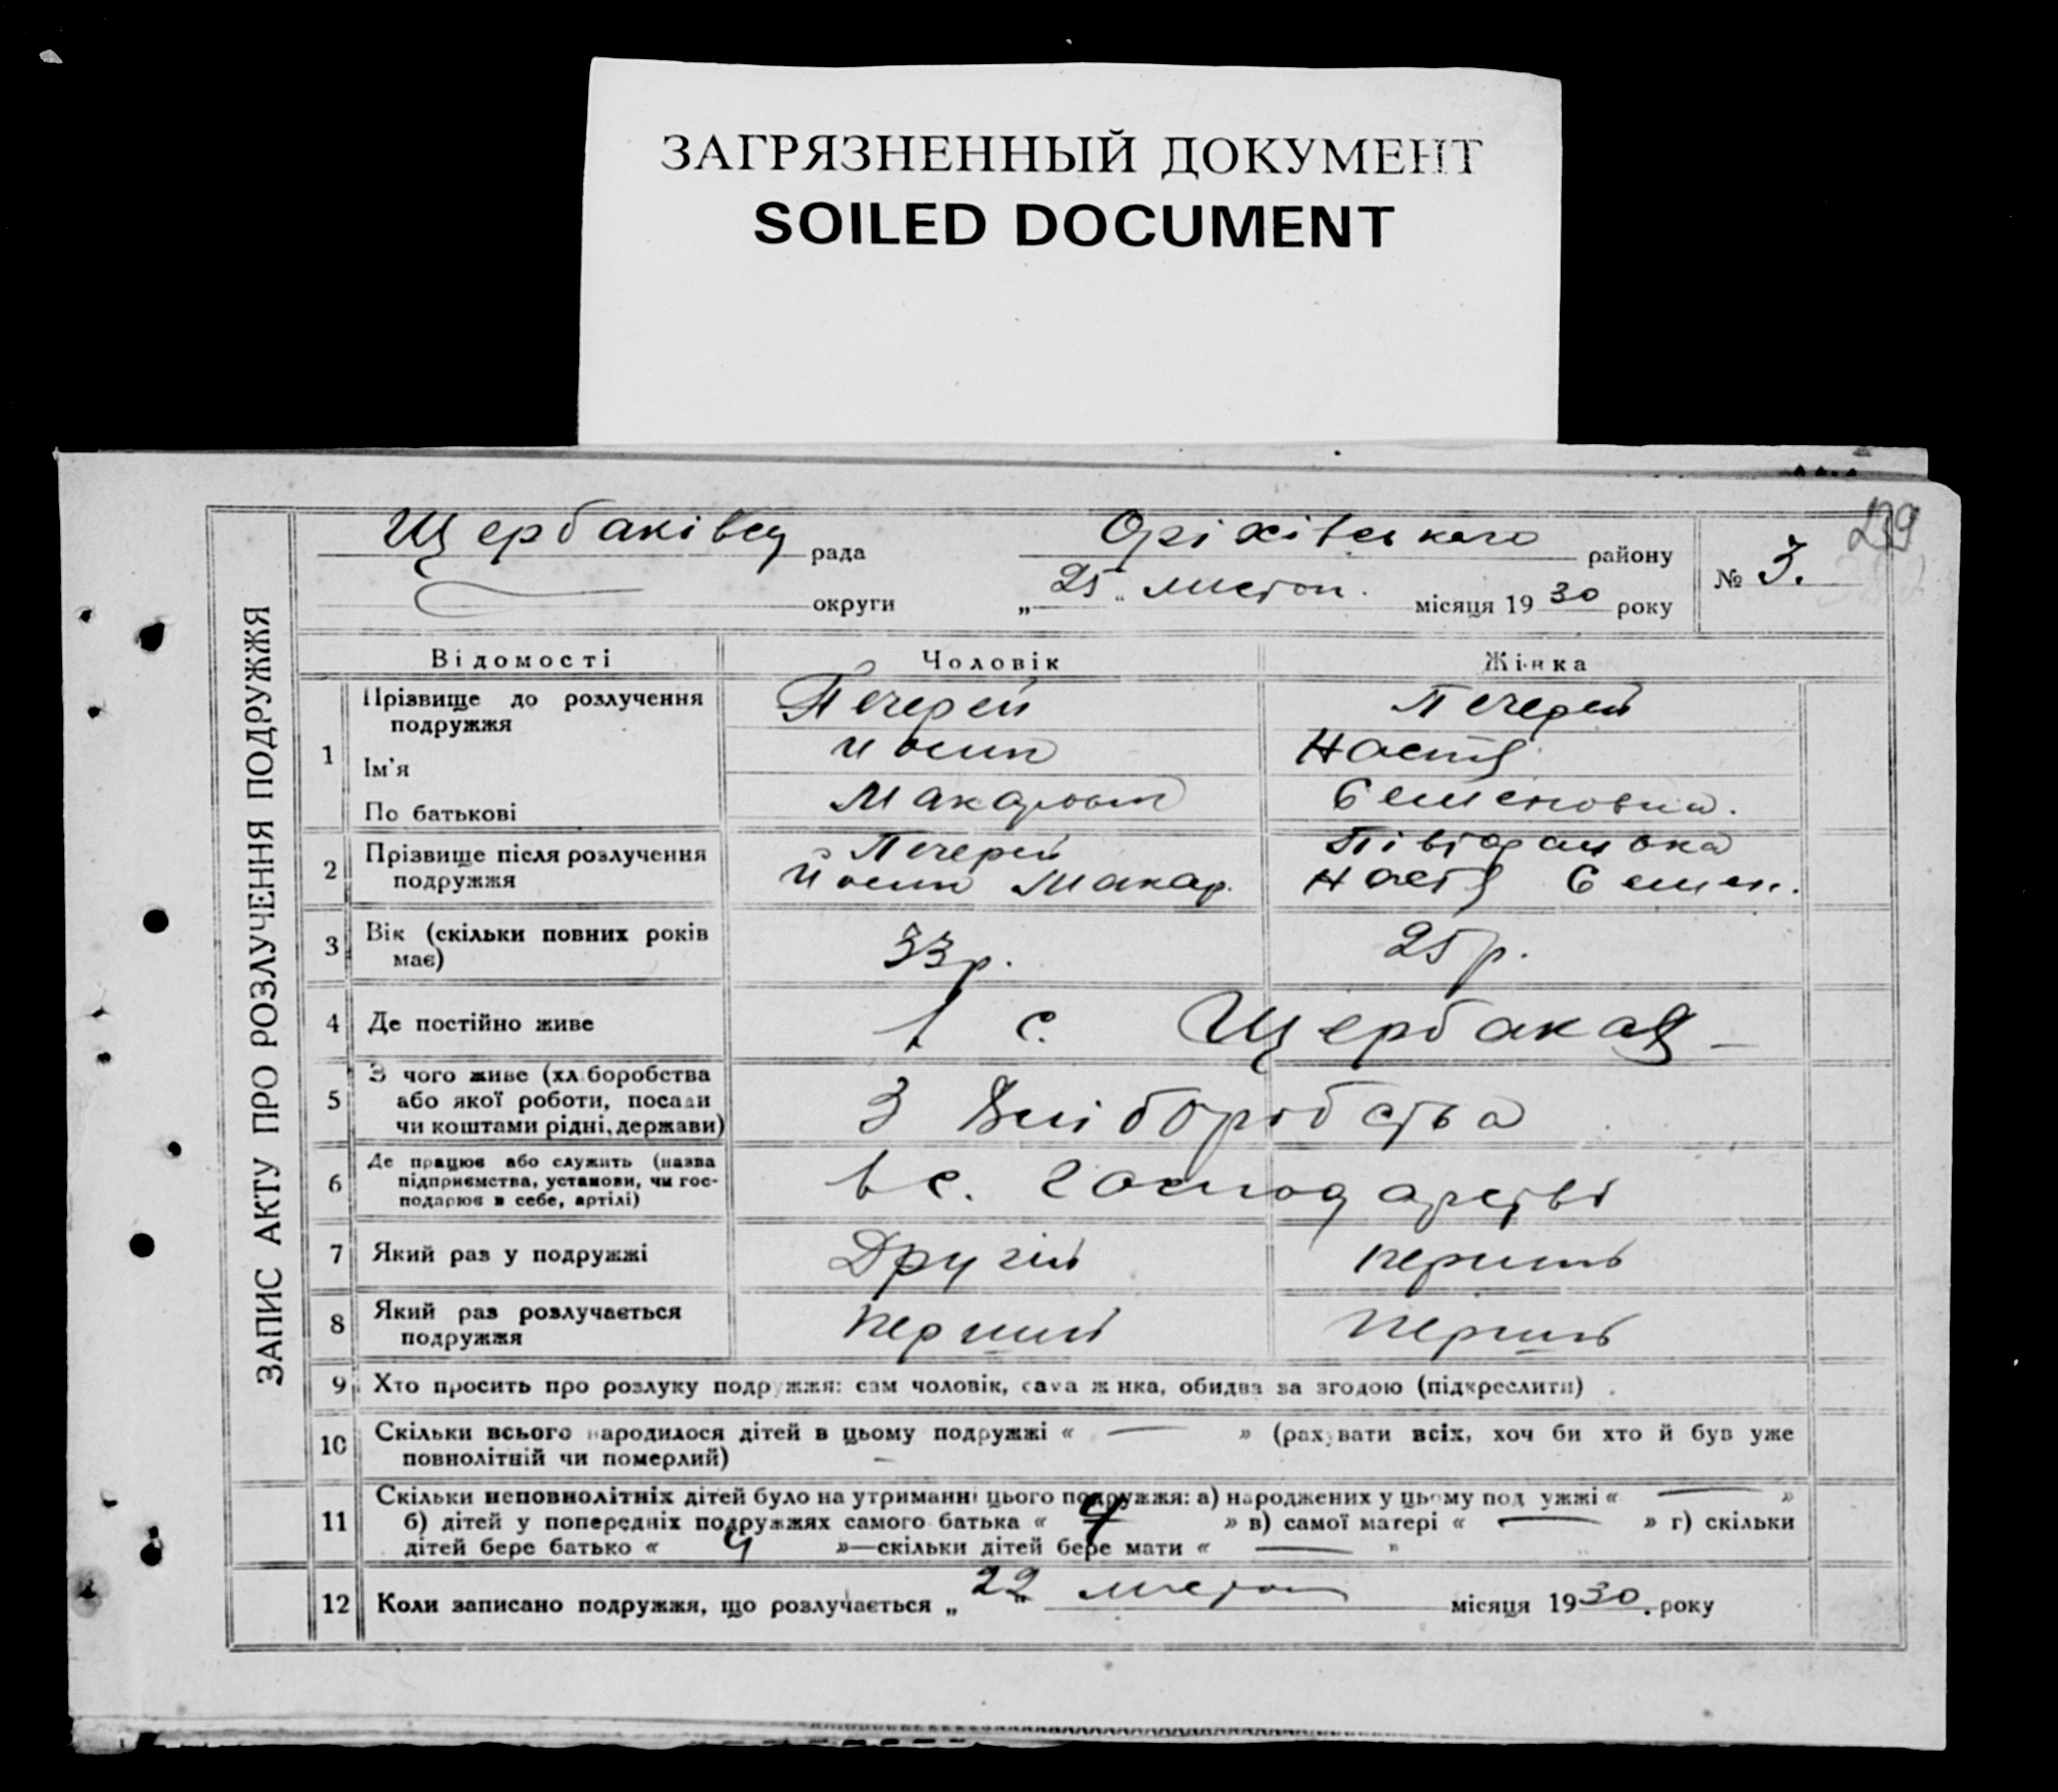 ЗАГРЯЗНЕННЫЙ ДОКУМЕНТ
SOILED DOCUMENT
239
ЗАПИС АКТУ ПРО РОЗЛУЧЕННЯ ПОДРУЖЖЯ
Щербаківсц рада Оріхівського району № 3.
округи „25" листоп. місяця 1930 року
Відомості Чоловік Жінка
1 Прізвище до розлучення Печерей Печерей
подружжя
Ім'я Йосип Настя
По батькові Макарович Семеновна.
2 Прізвище після розлучення Печерей
подружжя Йосип Макар. Настя Семен.
3 Вік (скільки повних років 33р. 25р.
має)
4 Де постійно живе в с. Щербаках
5 З чого живе (хліборобства З хліборобства
або якої роботи, посади
чи коштами рідні, держави)
6 Де працює або служить (назва в с. господарстві
підприємства, установи, чи гос-
подарює в себе, артілі)
7 Який раз у подружжі Другий перший
8 Який раз розлучається перший перший
подружжя
9 Хто просить про розлуку подружжя: сам чоловік, сама жінка, обидва за згодою (підкреслити)
10 Скільки всього народилося дітей в цьому подружжі « — » (рахувати всіх, хоч би хто й був уже
повнолітній чи померлий)
11 Скільки неповнолітніх дітей було на утриманні цього подружжя: а) народжених у цьому подружжі « — »
б) дітей у попередніх подружжях самого батька « 4 » в) самої матері « — » г) скільки
дітей бере батько « 4 »—скільки дітей бере мати « — »
12 Коли записано подружжя, що розлучається „22" листоп місяця 1930 року